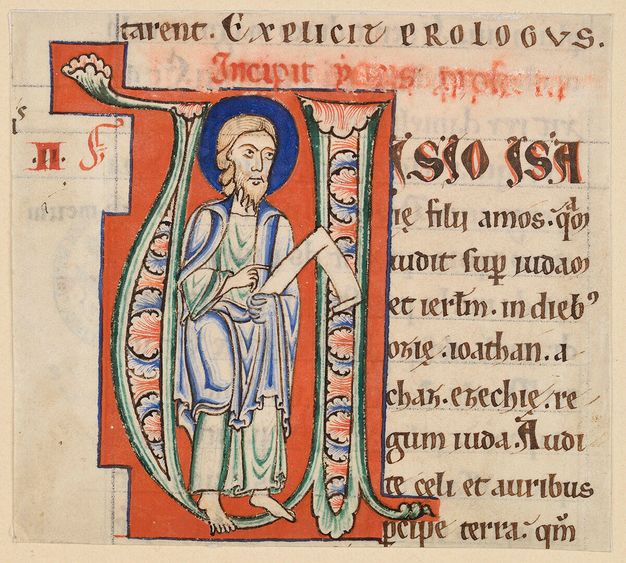 tarent. Explicit prologus.
Incipit
.II.
VISIO ISA
ię filii amos. qᵃm
uidit sup̄ iudam
et ierlm̄. in diebꝰ
ozię. ioathan. a
chaz. ezechię. re
gum iuda. Audi
te celi et auribus
ꝑcipe terra. qm̄